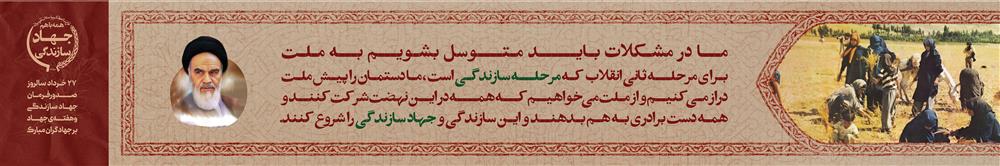 ما در مشکلات باید متوسل بشویم به ملت
برای مرحله ثانی انقلاب که مرحله سازندگی است، ما دستمان را پیش ملت
دراز می کنیم و از ملت می خواهیم که همه در این نهضت شرکت کنند و
همه دست برادری به هم بدهند و این سازندگی و جهاد سازندگی را شروع کنند.
همه با هم
جهاد
سازندگی
۲۷ خرداد سالروز
صدور فرمان
جهاد سازندگی
و هفته‌ی جهاد
بر جهادگران مبارک